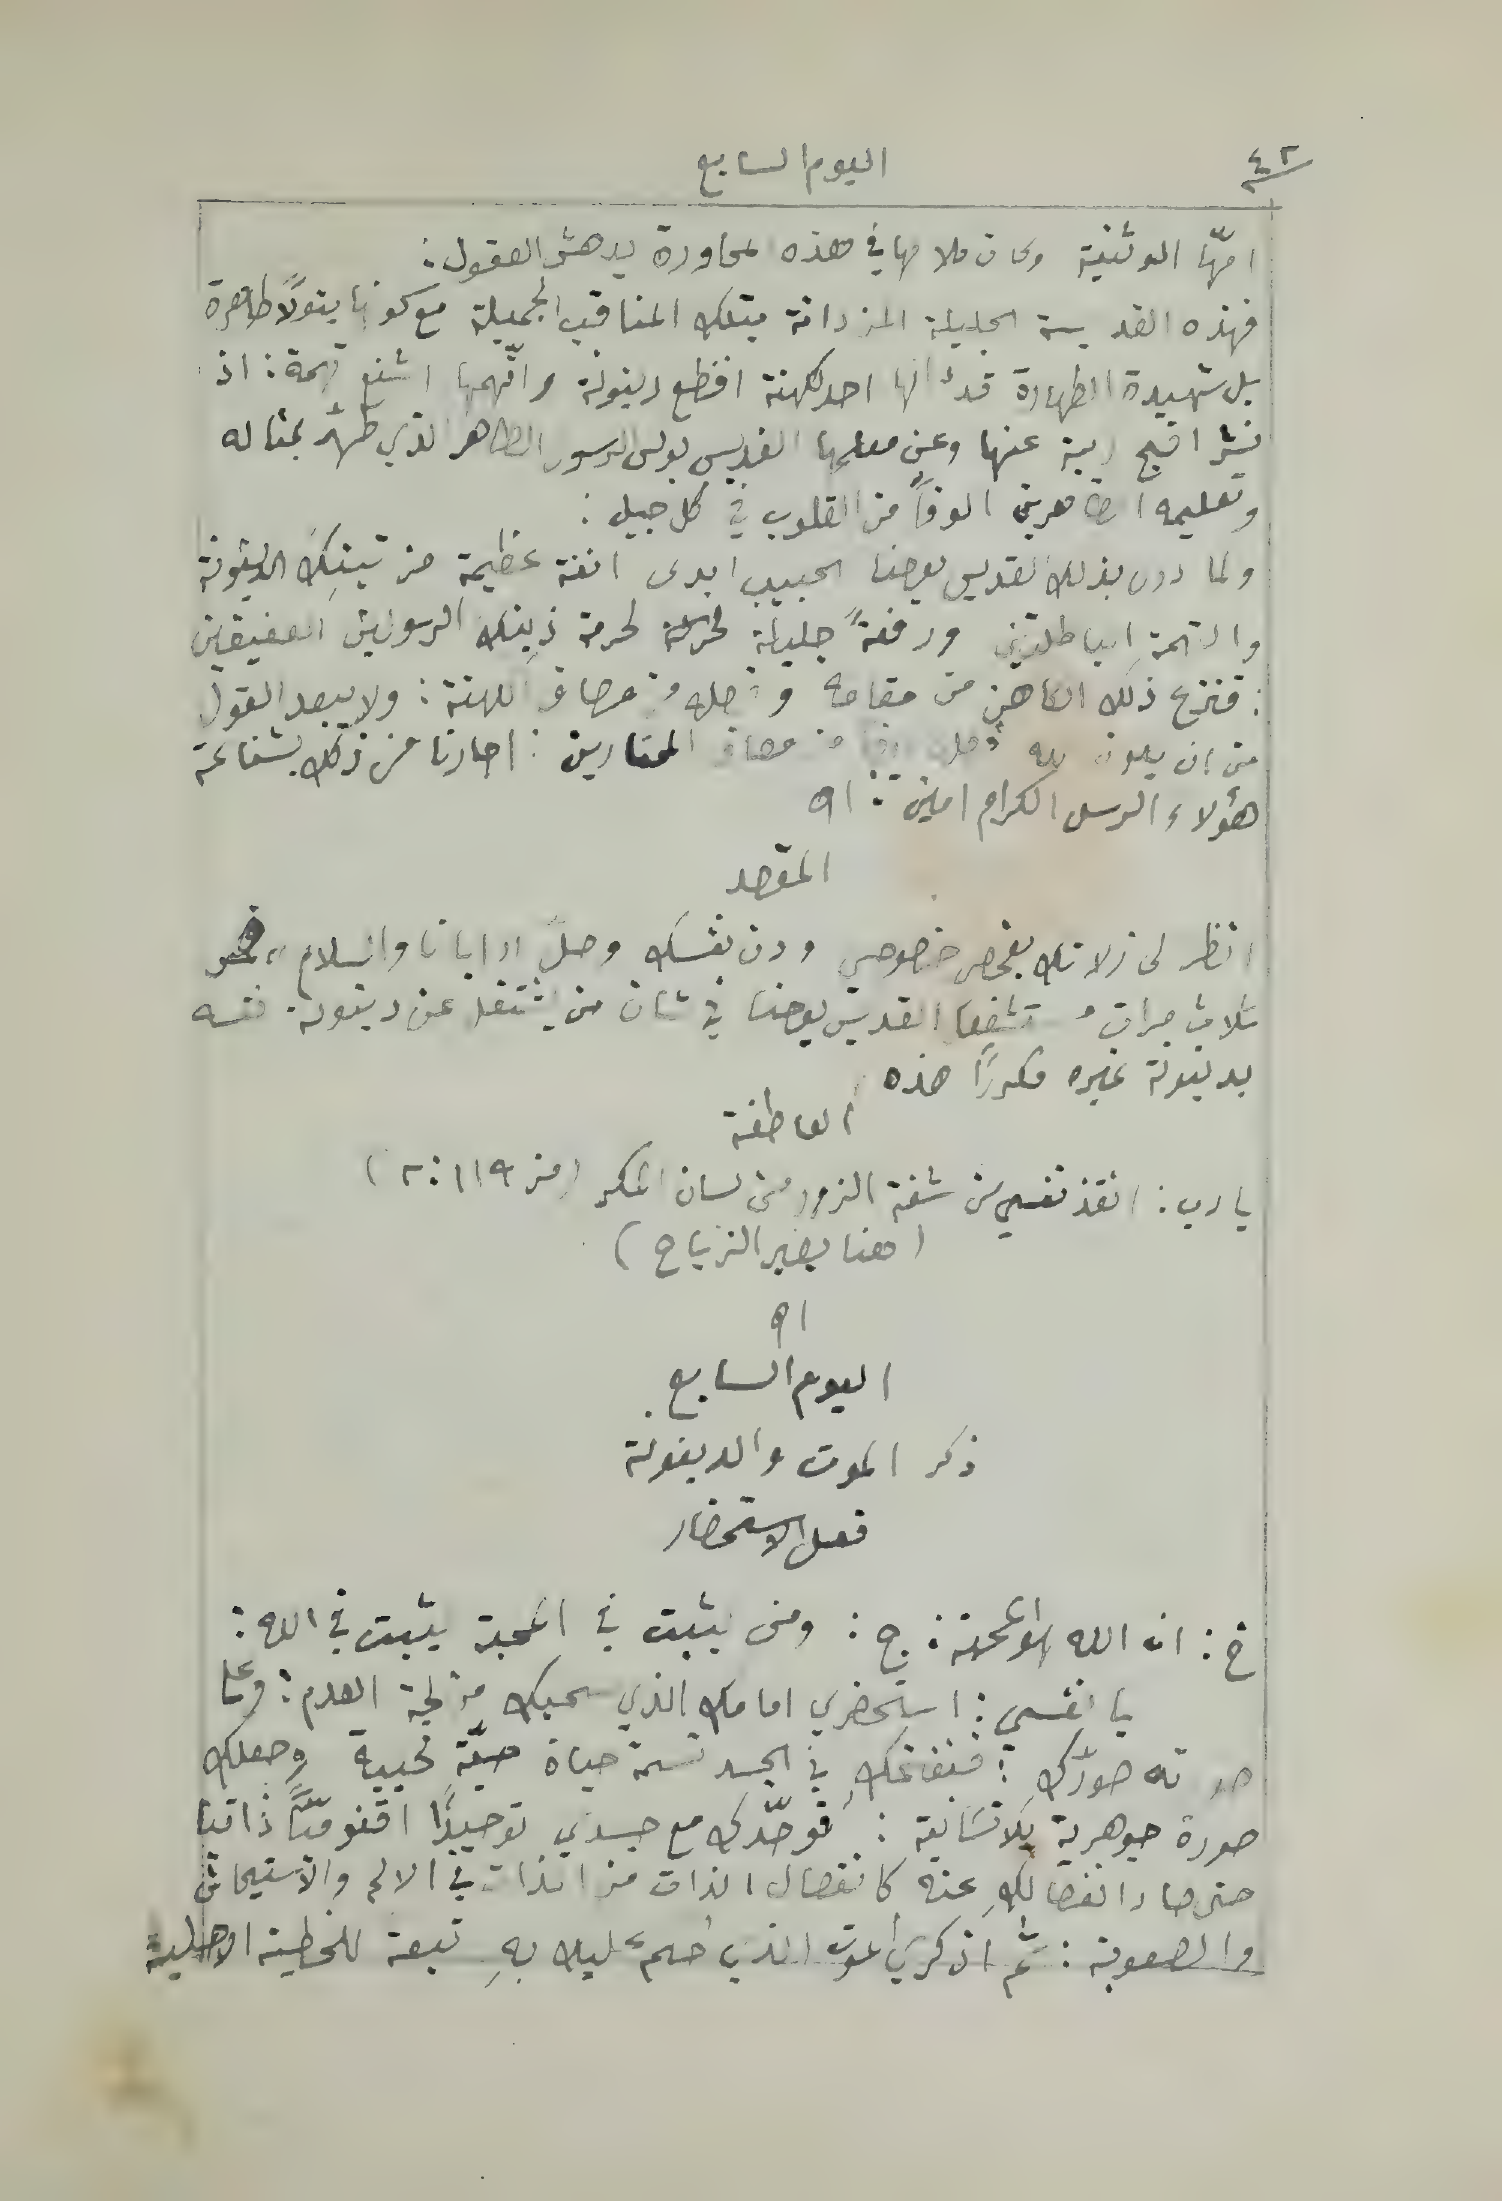 ٤٢
اليوم السابع
امّها الوثنية وكان كلامها في هذه المحاورة يدهش العقول :
فهذه القديسة الجليلة المزدانة بتلك المناقب الجميلة مع كونها بتولاً طاهرة
بل شهيدة الطهارة قد احد الكهنة افظع دينونة واتّهمها اشنع تهمة : اذ
نشر اقبح ريبة عنها وعن معلمها القديس بولس الرسول الطاهر الذي طهّر بمثاله
وتعليمه الطاهرين الوفاً من القلوب في كل جيل :
ولما درى بذلك القديس يوحنا الحبيب ابدى انفة عظيمة من تينك الدينونة
والتهمةِ الباطلتين ورفعةً جليلة لحرمة ذينك الرسولين العفيفين
: فنزع ذلك الكاهن من مقامه مصاف الكهنة : ولا يبعد القول
من ان يكون لله مصاف المختارين : اجارنا من ذلك بشفاعة
هؤلاء الرسل الكرام امين : اه
المقصد
انظر الى زلاتك بفحص خصوصي ودن نفسك وصلِّ ابانا والسلام
ثلاث مرات مستشفعا القديس يوحنا في شان من يشتغل عن دينونة نفسه
بدينونة غيره مكررًا هذه
العاطفة
يا رب : انقذ نفسي من شفة الزور ومن لسان المكر (مز ١١٩ : ٢)
(هنا يصير الزياح)
اه
اليوم السابع
ذكر الموت والدينونة
فعل الاستحضار
خ : ان الله هو المحبة : ج : ومن يثبت في المحبة يثبت في الله :
يا نفسي : استحضري امامك الذي سحبك من لجة العدم : وعلى
صورته صوّركِ : فنفخكِ في الجسد نسمة حياة حيّة محيية وجعلك
صورة جوهرية للانسانية : فوحّدك مع جسدي توحيدًا اقنوميًّا ذاتيا
حتى صار انفصالكِ عنه كانفصال الذات من الذات في الالم والاستيحاش
والصعوبة : ثم اذكري الموت الذي حكم عليك بهِ تبعة للخطية الاصلية